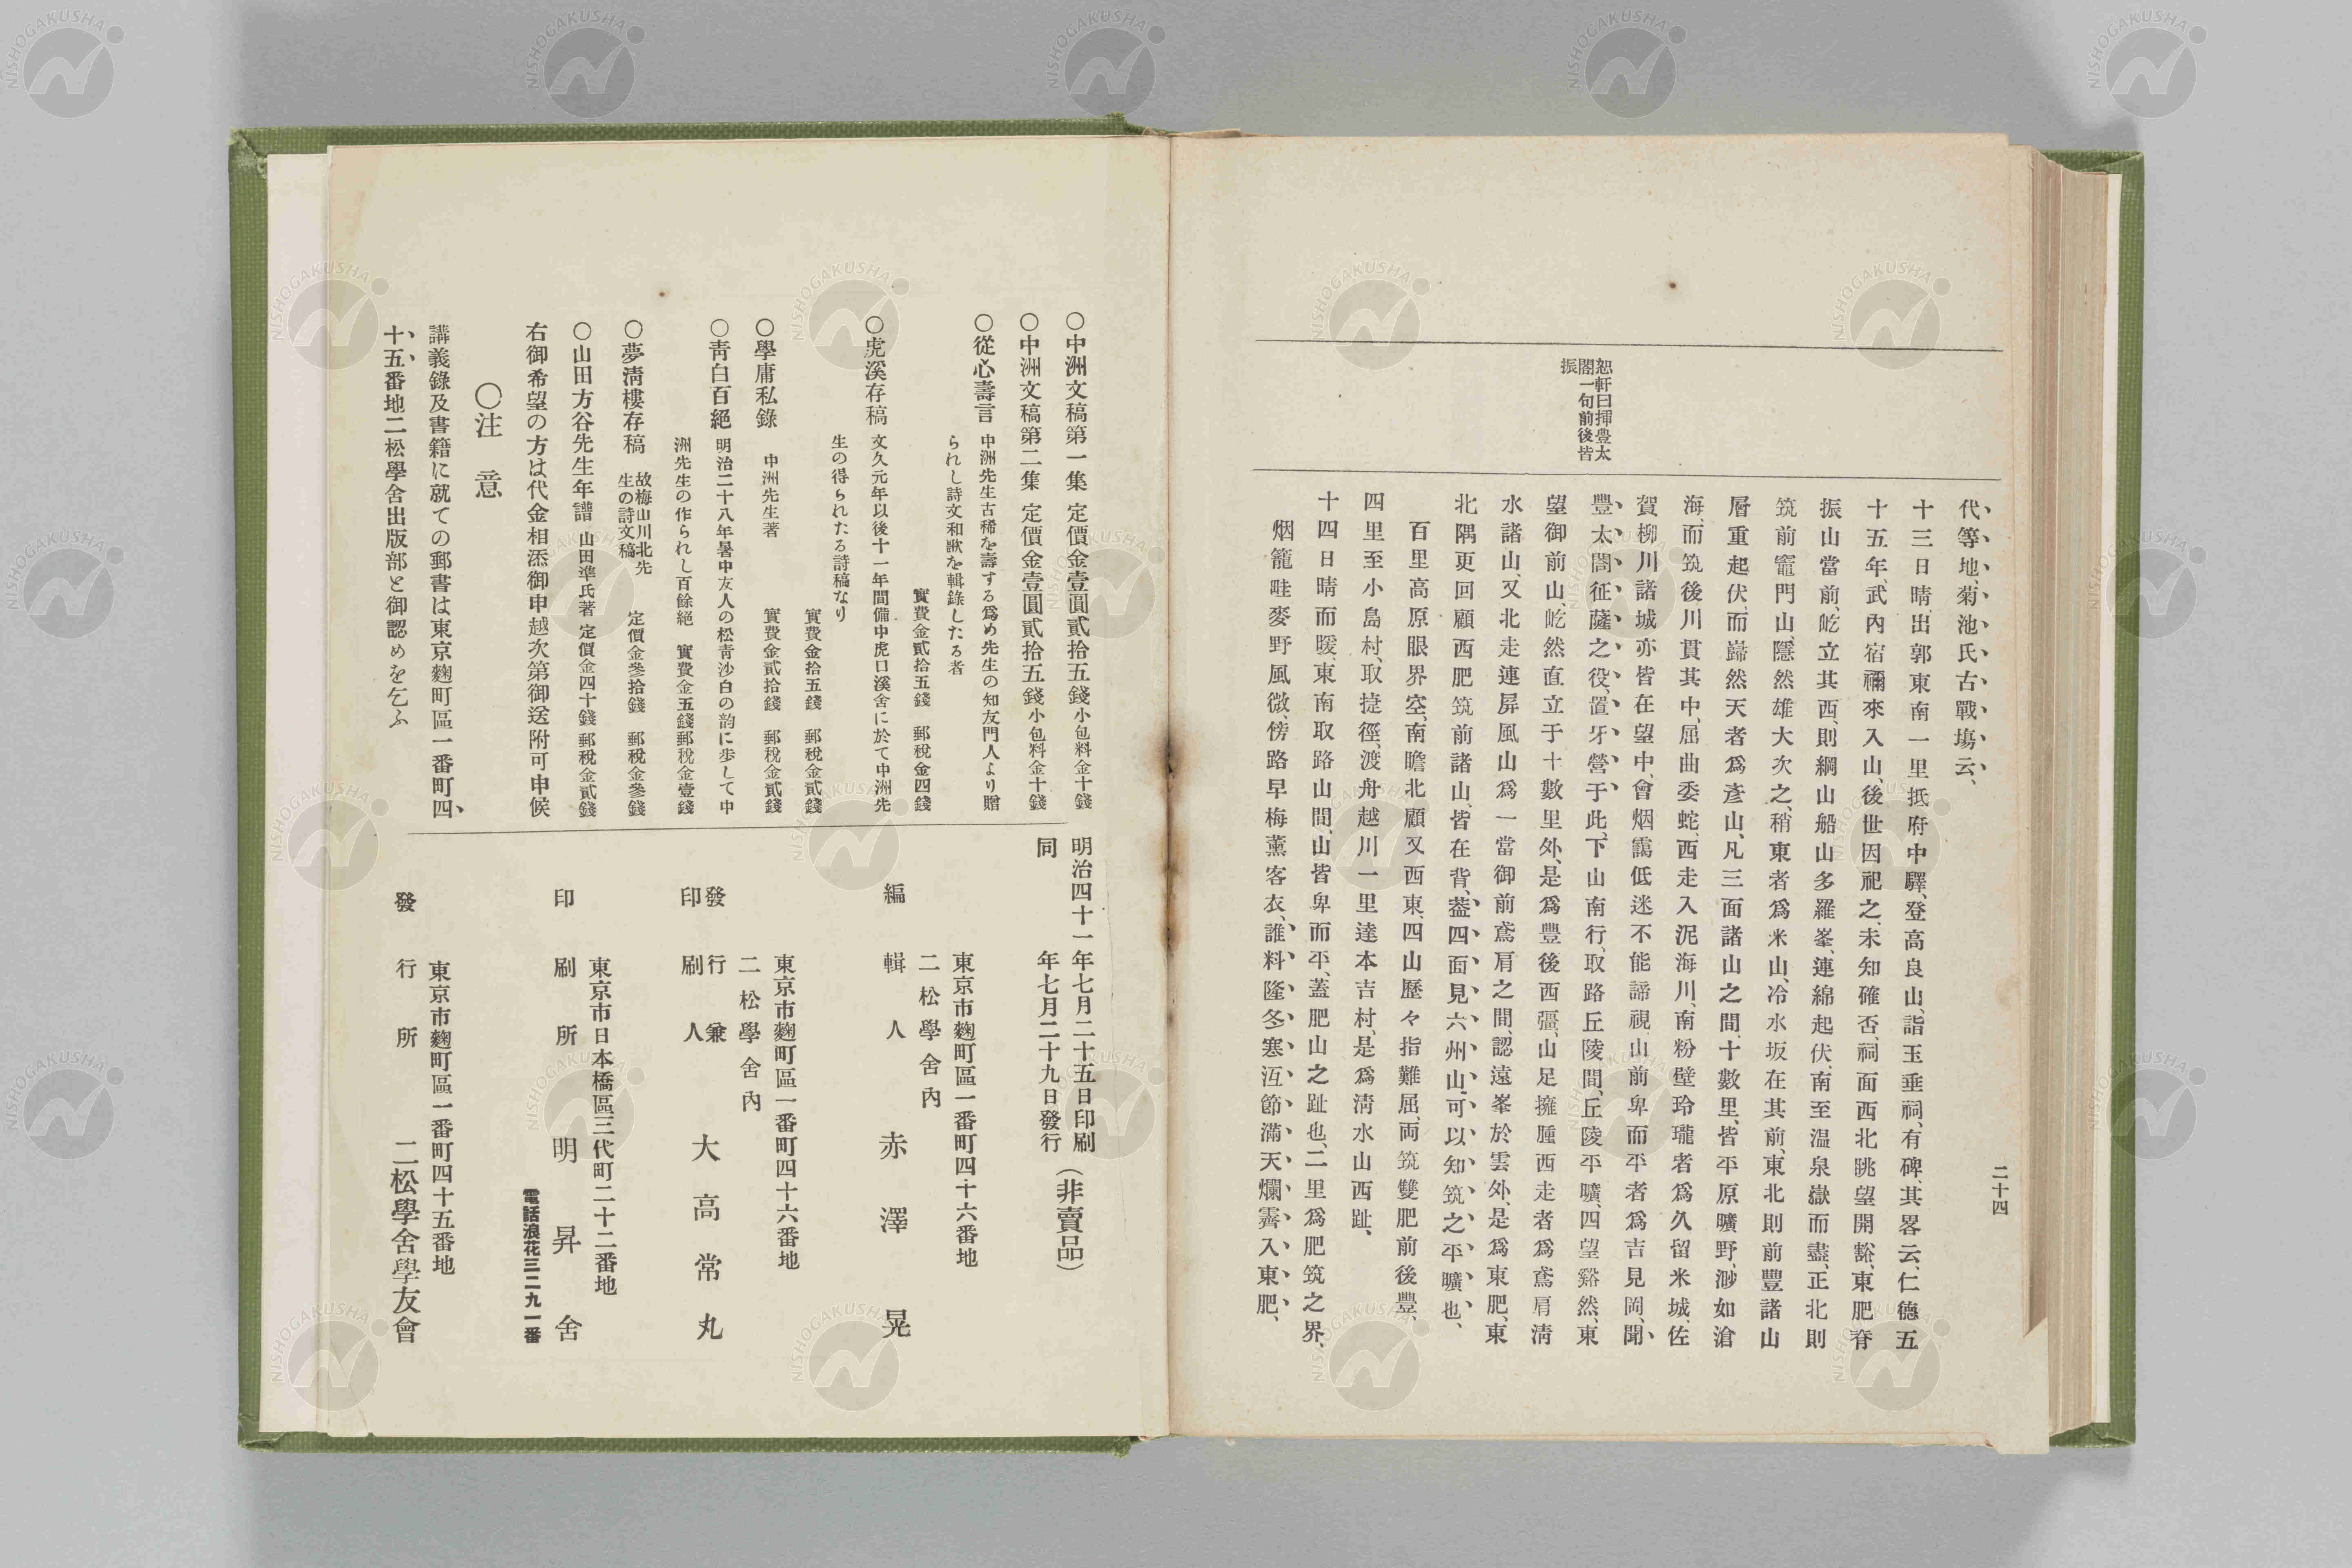 二十四
恕軒曰揷豊太
閤一句前後皆
振
代等地、菊池氏古戰塲云、
十三日晴、出郭東南一里抵府中驛、登高良山、詣玉垂祠、有碑、其畧云、仁德五
十五年、武內宿禰來入山、後世因祀之、未知確否、祠面西北眺望開豁、東肥脊
振山當前、屹立其西、則綱山船山多羅峯、連綿起伏、南至温泉嶽而盡、正北則
筑前竈門山、隱然雄大次之、稍東者爲米山、冷水坂在其前、東北則前豐諸山
層重起伏、而巋然天者爲彥山、凡三面諸山之間、十數里、皆平原曠野、渺如滄
海、而筑後川貫其中、屈曲委蛇、西走入泥海川、南粉壁玲瓏者爲久留米城、佐
賀柳川諸城亦皆在望中、會烟靄低迷不能諦視、山前卑而平者爲吉見岡、聞
豐太閤征薩之役、置牙營于此、下山南行、取路丘陵間、丘陵平曠、四望谿然、東
望御前山、屹然直立于十數里外、是爲豐後西彊、山足擁腫西走者爲鳶肩淸
水諸山、又北走連屏風山爲一當御前鳶肩之間、認遠峯於雲外、是爲東肥、東
北隅更回顧西肥筑前諸山、皆在背、葢四面見六州山、可以知筑之平曠也、
百里高原眼界空、南瞻北顧又西東、四山歷々指難屈、両筑雙肥前後豐、
四里至小島村、取捷徑、渡舟越川一里達本吉村、是爲淸水山西趾、
十四日晴而暖、東南取路山間、山皆卑而平、蓋肥山之趾也、二里爲肥筑之界、
烟籠畦麥野風微、傍路早梅薰客衣、誰料隆冬寒沍節、滿天爛霽入東肥、
〇中洲文稿第一集 定價金壹圓貳拾五錢 小包料金十錢
〇中洲文稿第二集 定價金壹圓貳拾五錢 小包料金十錢
〇從心壽言 中洲先生古稀を壽する爲め先生の知友門人より贈
られし詩文和歌を輯錄したる者
實費金貳拾五錢 郵稅金四錢
〇虎溪存稿 文久元年以後十一年間備中虎口溪舍に於て中洲先
生の得られたる詩稿なり
實費金拾五錢 郵稅金貳錢
〇學庸私錄 中洲先生著 實費金貳拾錢 郵稅金貳錢
〇靑白百絕 明治二十八年暑中友人の松靑沙白の韵に步して中
洲先生の作られし百餘絕 實費金五錢郵稅金壹錢
〇夢淸樓存稿 故梅山川北先
生の詩文稿 定價金參拾錢 郵稅金參錢
〇山田方谷先生年譜 山田準氏著 定價金四十錢 郵稅金貳錢
右御希望の方は代金相添御申越次第御送附可申候
〇注意
講義錄及書籍に就ての郵書は東京麴町區一番町四
十五番地二松學舍出版部と御認めを乞ふ
明治四十一年七月二十五日印刷
同年七月二十九日發行
(非賣品)
東京市麴町區一番町四十六番地
二松學舍內
編輯人 赤澤晃
東京市麴町區一番町四十六番地
二松學舍內
發行兼
印刷人 大高常丸
東京市日本橋區三代町二十二番地
印刷所 明昇舍
電話浪花三二九一番
東京市麴町區一番町四十五番地
發行所 二松學舍學友會